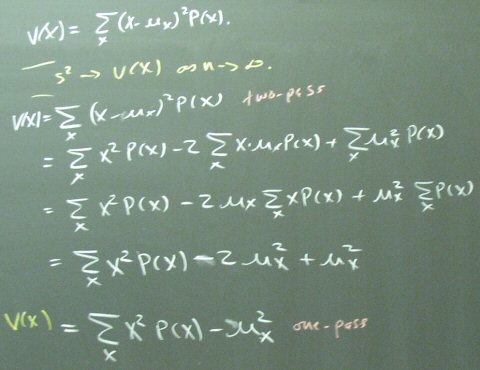 V(X) = Σₓ (x-μₓ)² P(x).
s² → V(X) as n → ∞.
V(X) = Σₓ (x-μₓ)² P(x) two-pass
= Σₓ x² P(x) - 2 Σₓ x·μₓ P(x) + Σₓ μₓ² P(x)
= Σₓ x² P(x) - 2 μₓ Σₓ x P(x) + μₓ² Σₓ P(x)
= Σₓ x² P(x) - 2 μₓ² + μₓ²
V(X) = Σₓ x² P(x) - μₓ² one-pass